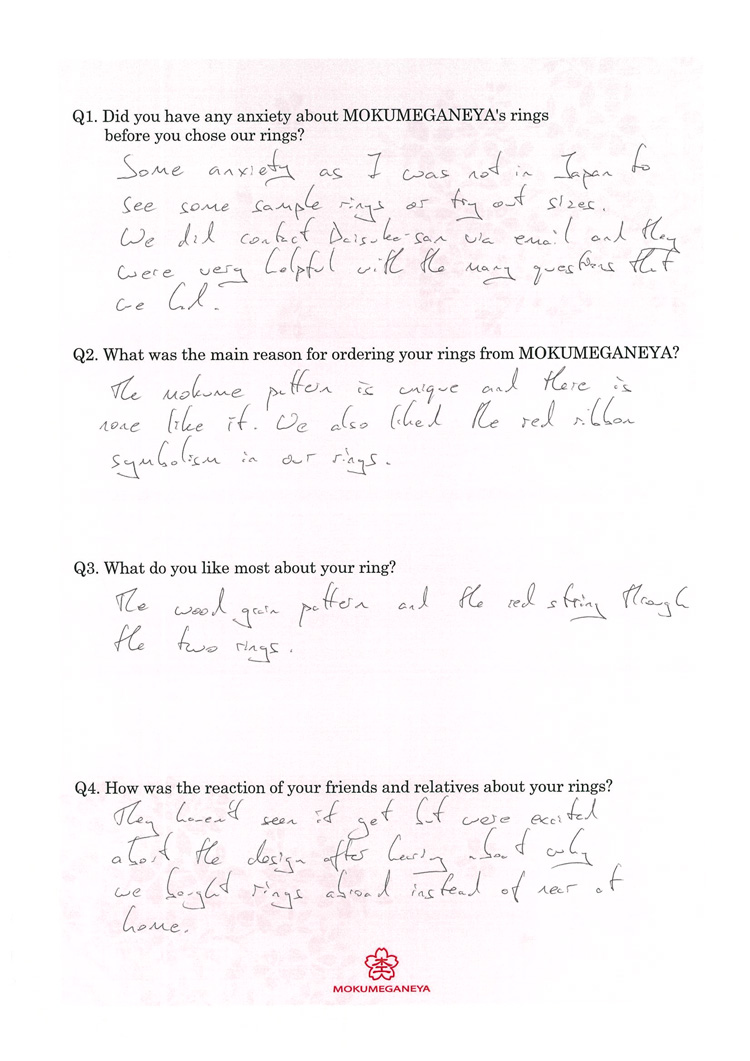 Q1. Did you have any anxiety about MOKUMEGANEYA's rings
before you chose our rings?
Some anxiety as I was not in Japan to
see some sample rings or try out sizes.
We did contact Daisuke-san via email and they
were very helpful with the many questions that
we had.
Q2. What was the main reason for ordering your rings from MOKUMEGANEYA?
The mokume pattern is unique and there is
none like it. We also liked the red ribbon
symbolism in our rings.
Q3. What do you like most about your ring?
The wood grain pattern and the red string through
the two rings.
Q4. How was the reaction of your friends and relatives about your rings?
They haven't seen it yet but were excited
about the design after hearing about why
we bought rings abroad instead of near at
home.
MOKUMEGANEYA